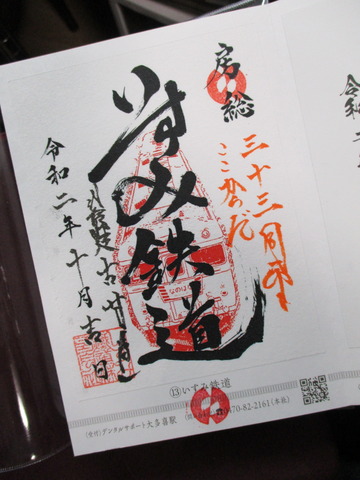 房総
三十三周年
ここからだ
いすみ鉄道
令和二年十月吉日
なのはな
⑬いすみ鉄道
470-82-2161(本社)
(受付)デンタルサポート大多喜駅
令和二